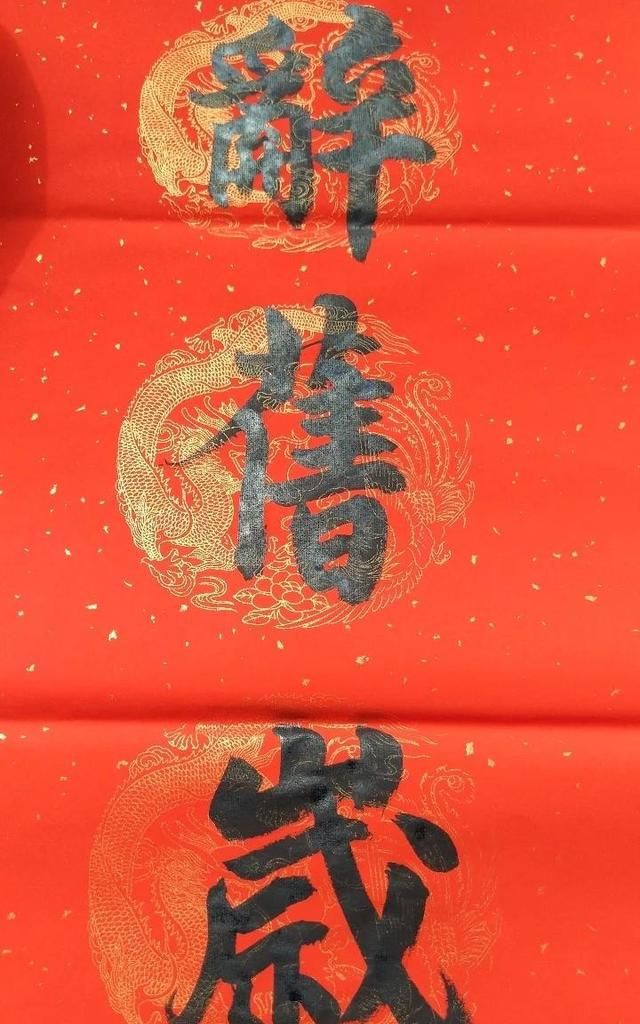 辭
舊
歲